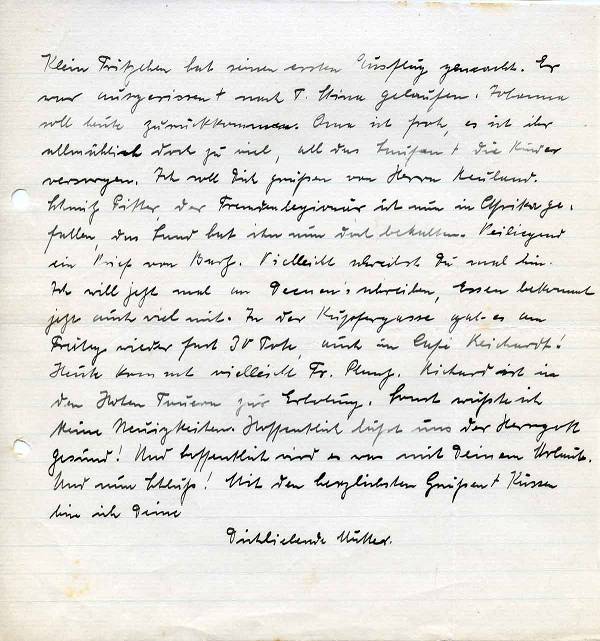 Klein Fritzchen hat seinen ersten Ausflug gemacht. Er
war ausgerissen + nach T. Stina gelaufen. Johanna
soll heute zurückkommen. Oma ist froh, es ist ihr
allmählich doch zu viel, all das Laufen + die Kinder
versorgen. Ich soll Dich grüßen von Herrn Neuland.
Schmitz Pitter, der Fremdenlegionär ist nun in Afrika ge-
fallen, das Land hat ihn nun dort behalten. Beiliegend
ein Brief von . Vielleicht schreibst Du mal hin.
Ich will jetzt mal an schreiben, Essen bekommt
jetzt auch viel mit. In der Kupfergasse gab es am
Freitag wieder fast 30 Tote, auch im Café Reichardt!
Heute kommt vielleicht Fr. . Richard ist in
den Hohen Tauern zur Erholung. Sonst wüßte ich
keine Neuigkeiten. Hoffentlich läßt uns der Herrgott
gesund! Und hoffentlich wird es was mit Deinem Urlaub.
Und nun Schluß! Mit den herzlichsten Grüßen + Küssen
bin ich Deine
Dichliebende Mutter.